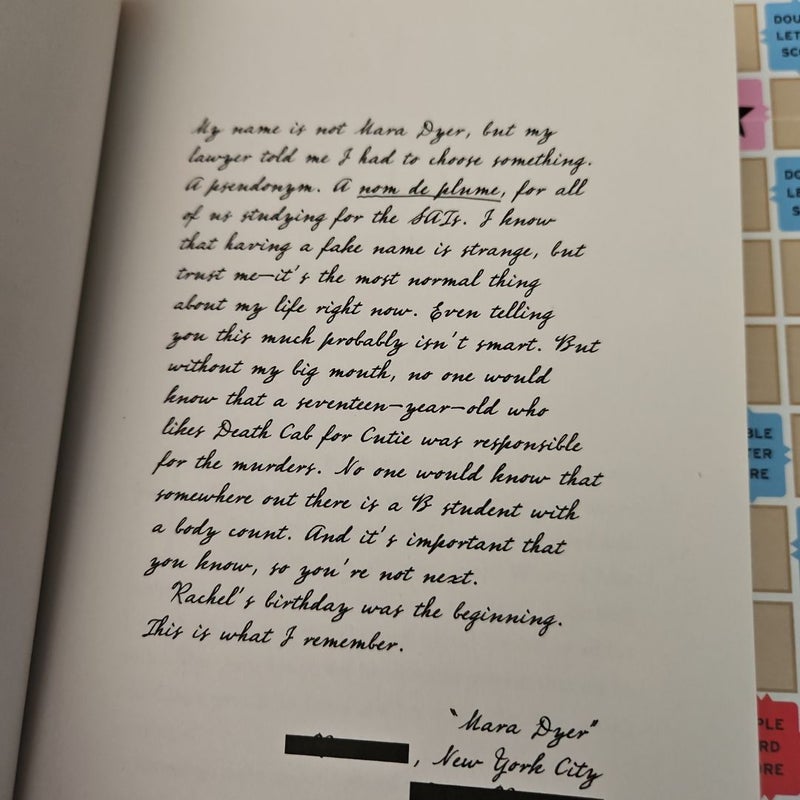 My name is not Mara Dyer, but my
lawyer told me I had to choose something.
A pseudonym. A nom de plume, for all
of us studying for the SATs. I know
that having a fake name is strange, but
trust me—it's the most normal thing
about my life right now. Even telling
you this much probably isn't smart. But
without my big mouth, no one would
know that a seventeen-year-old who
likes Death Cab for Cutie was responsible
for the murders. No one would know that
somewhere out there is a B student with
a body count. And it's important that
you know, so you're not next.
Rachel's birthday was the beginning.
This is what I remember.
"Mara Dyer"
, New York City
DOU
LET
SCO
DO
LE
S
BLE
TER
RE
PLE
RD
ORE